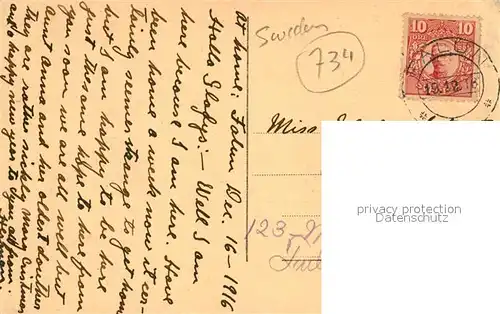 At home: Falun Dec. 16-1916
Hallo Gladys:- Well I am
here because I am here. Have
been home a week now it cer-
tainly seemes strange to get home
but I am happy to be here
just the same hope to hear from
you soon we are all well but
aunt Anna and her oldest doughter
they are rather sickly Merry Cristmas
and a happy new year to you all from
Sweden
734
10 10
19.12.16
Miss
123
privacy protection
www.ansichtskarten-lexikon.de